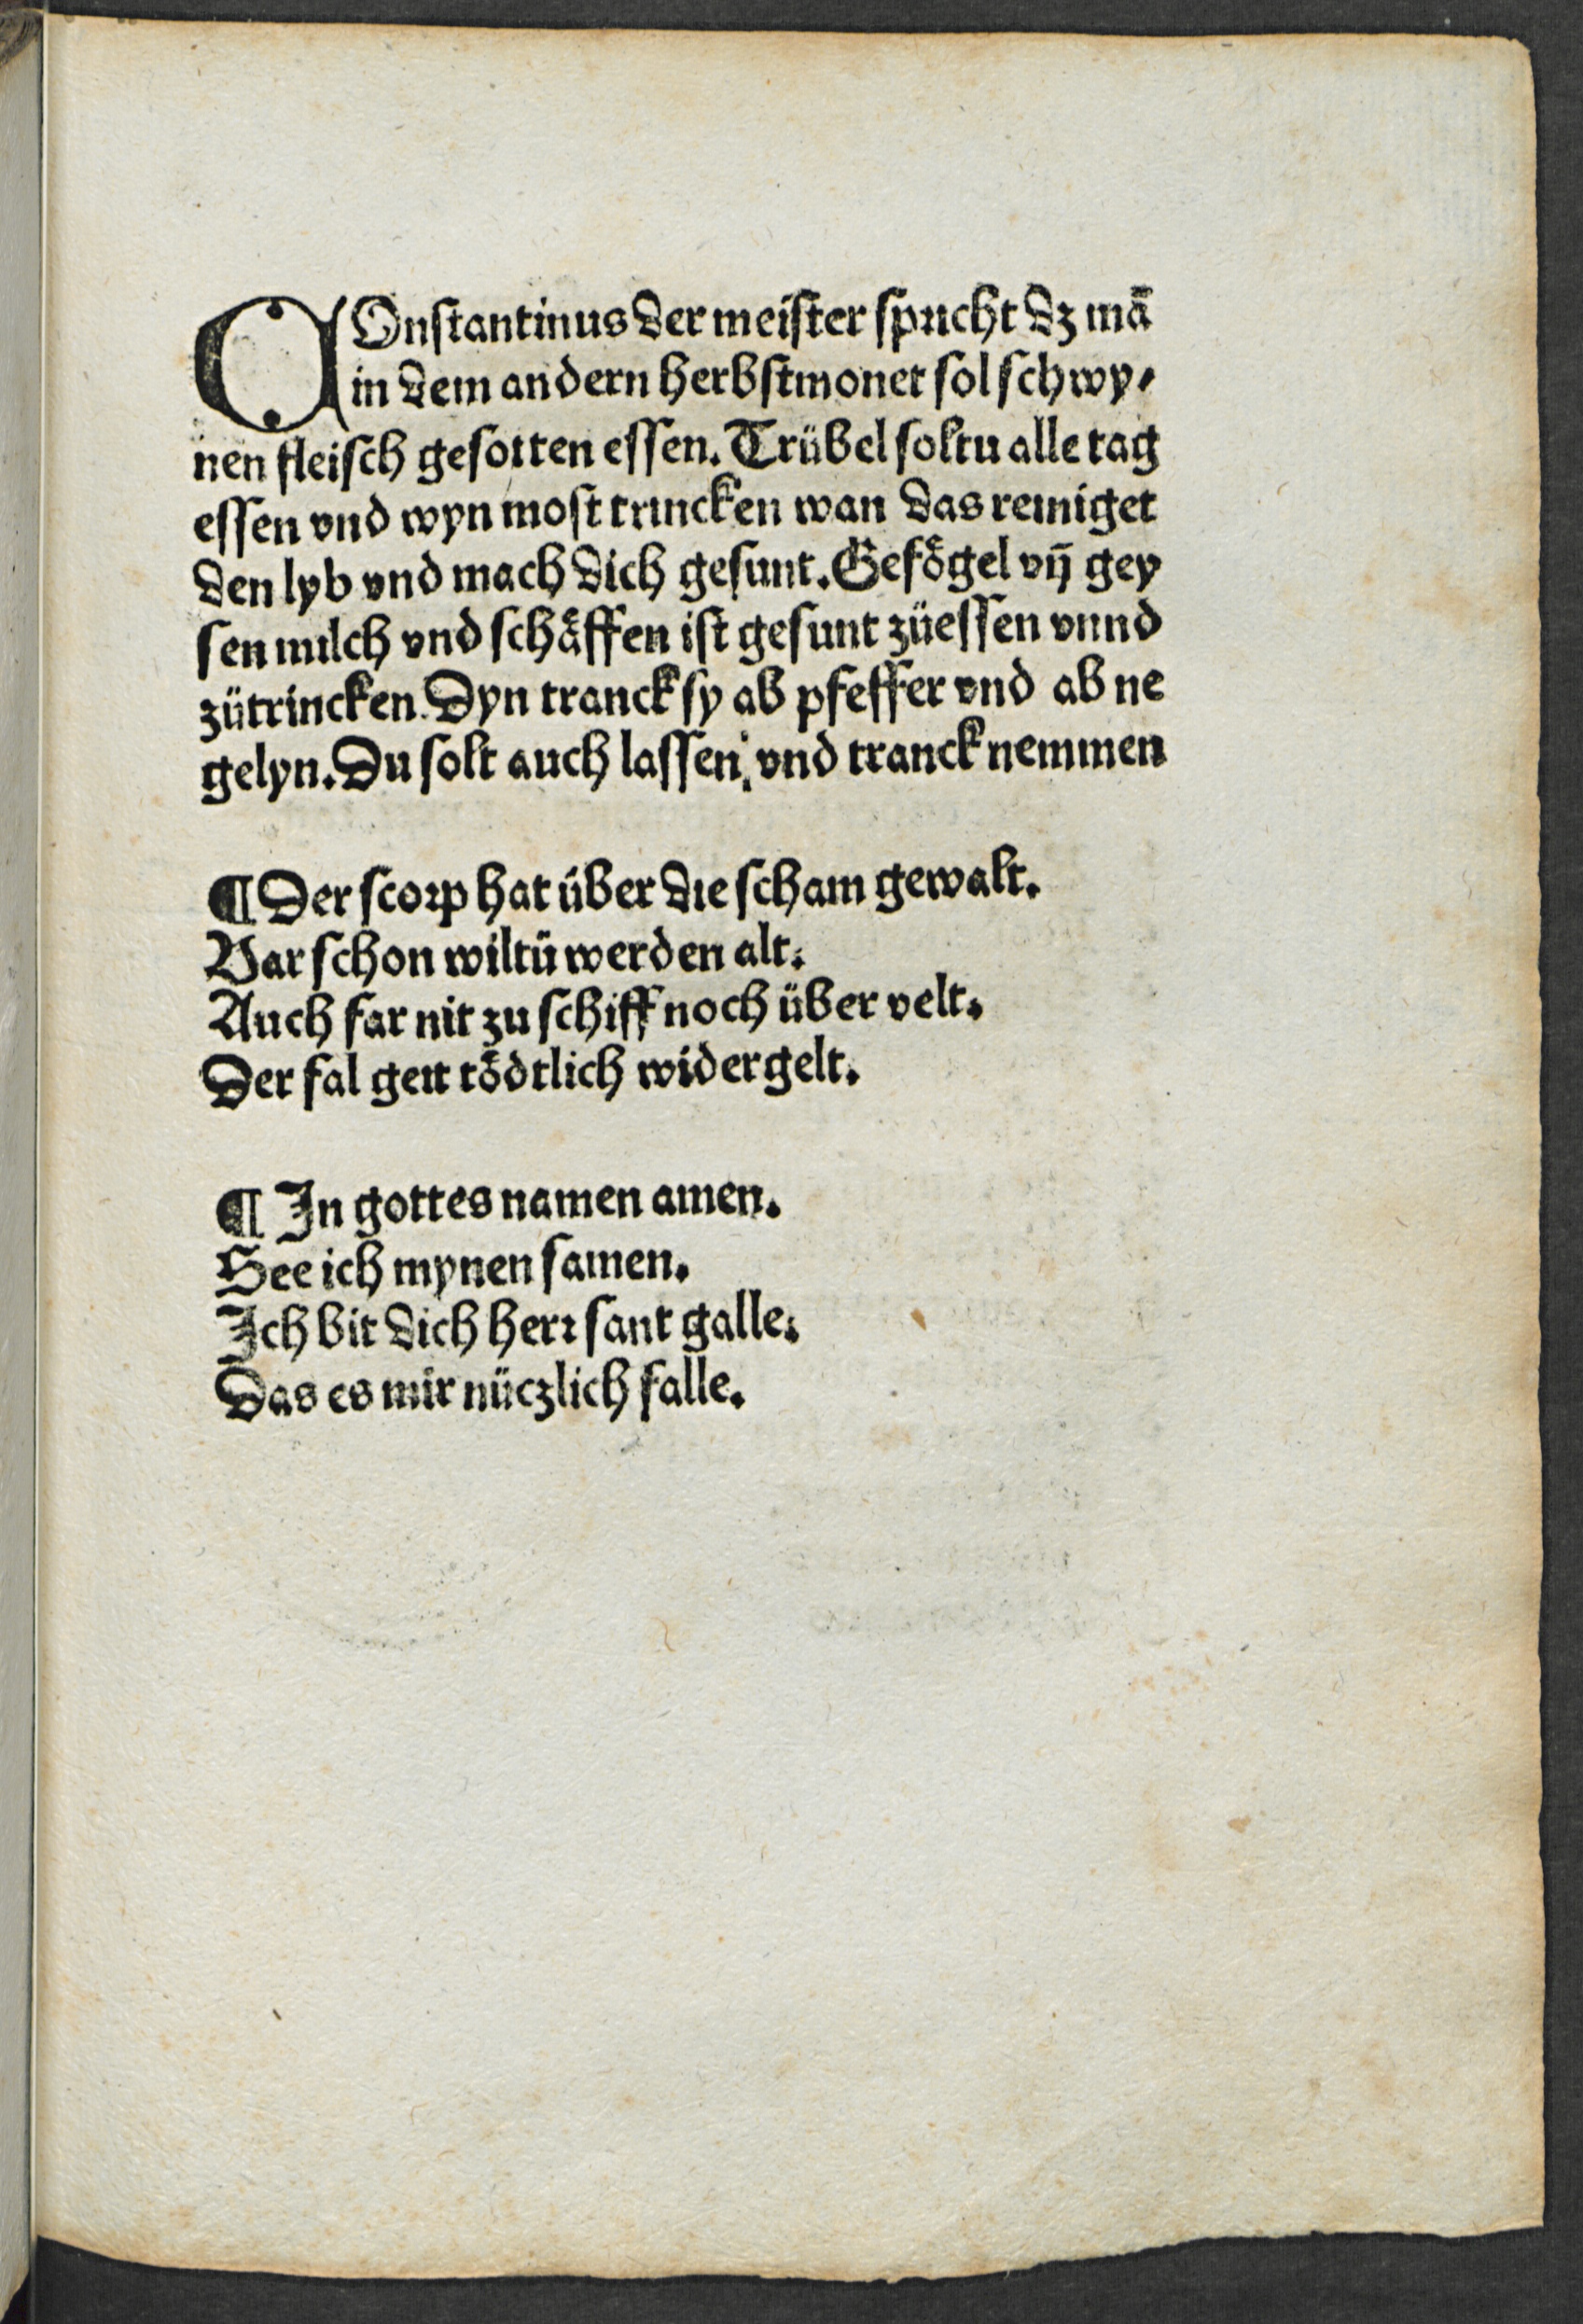 COnstantinus der meister spricht dz mā
in dem andern herbstmonet sol schwy⸗
nen fleisch gesotten essen. Trübel soltu alle tag
essen vnd wyn most trincken wan das reiniget
den lyb vnd mach dich gesunt. Gefögel vñ gey
sen milch vnd schäffen ist gesunt züessen vnnd
zütrincken. Dyn tranck sy ab pfeffer vnd ab ne
gelyn. Du solt auch lassen, vnd tranck nemmen
¶ Der scorp hat über die scham gewalt.
Bar schon wiltü werden alt.
Auch far nit zu schiff noch über velt.
Der fal gett tödtlich widergelt.
¶ In gottes namen amen.
See ich mynen samen.
Ich bit dich herr sant galle.
Das es mir nüczlich falle.